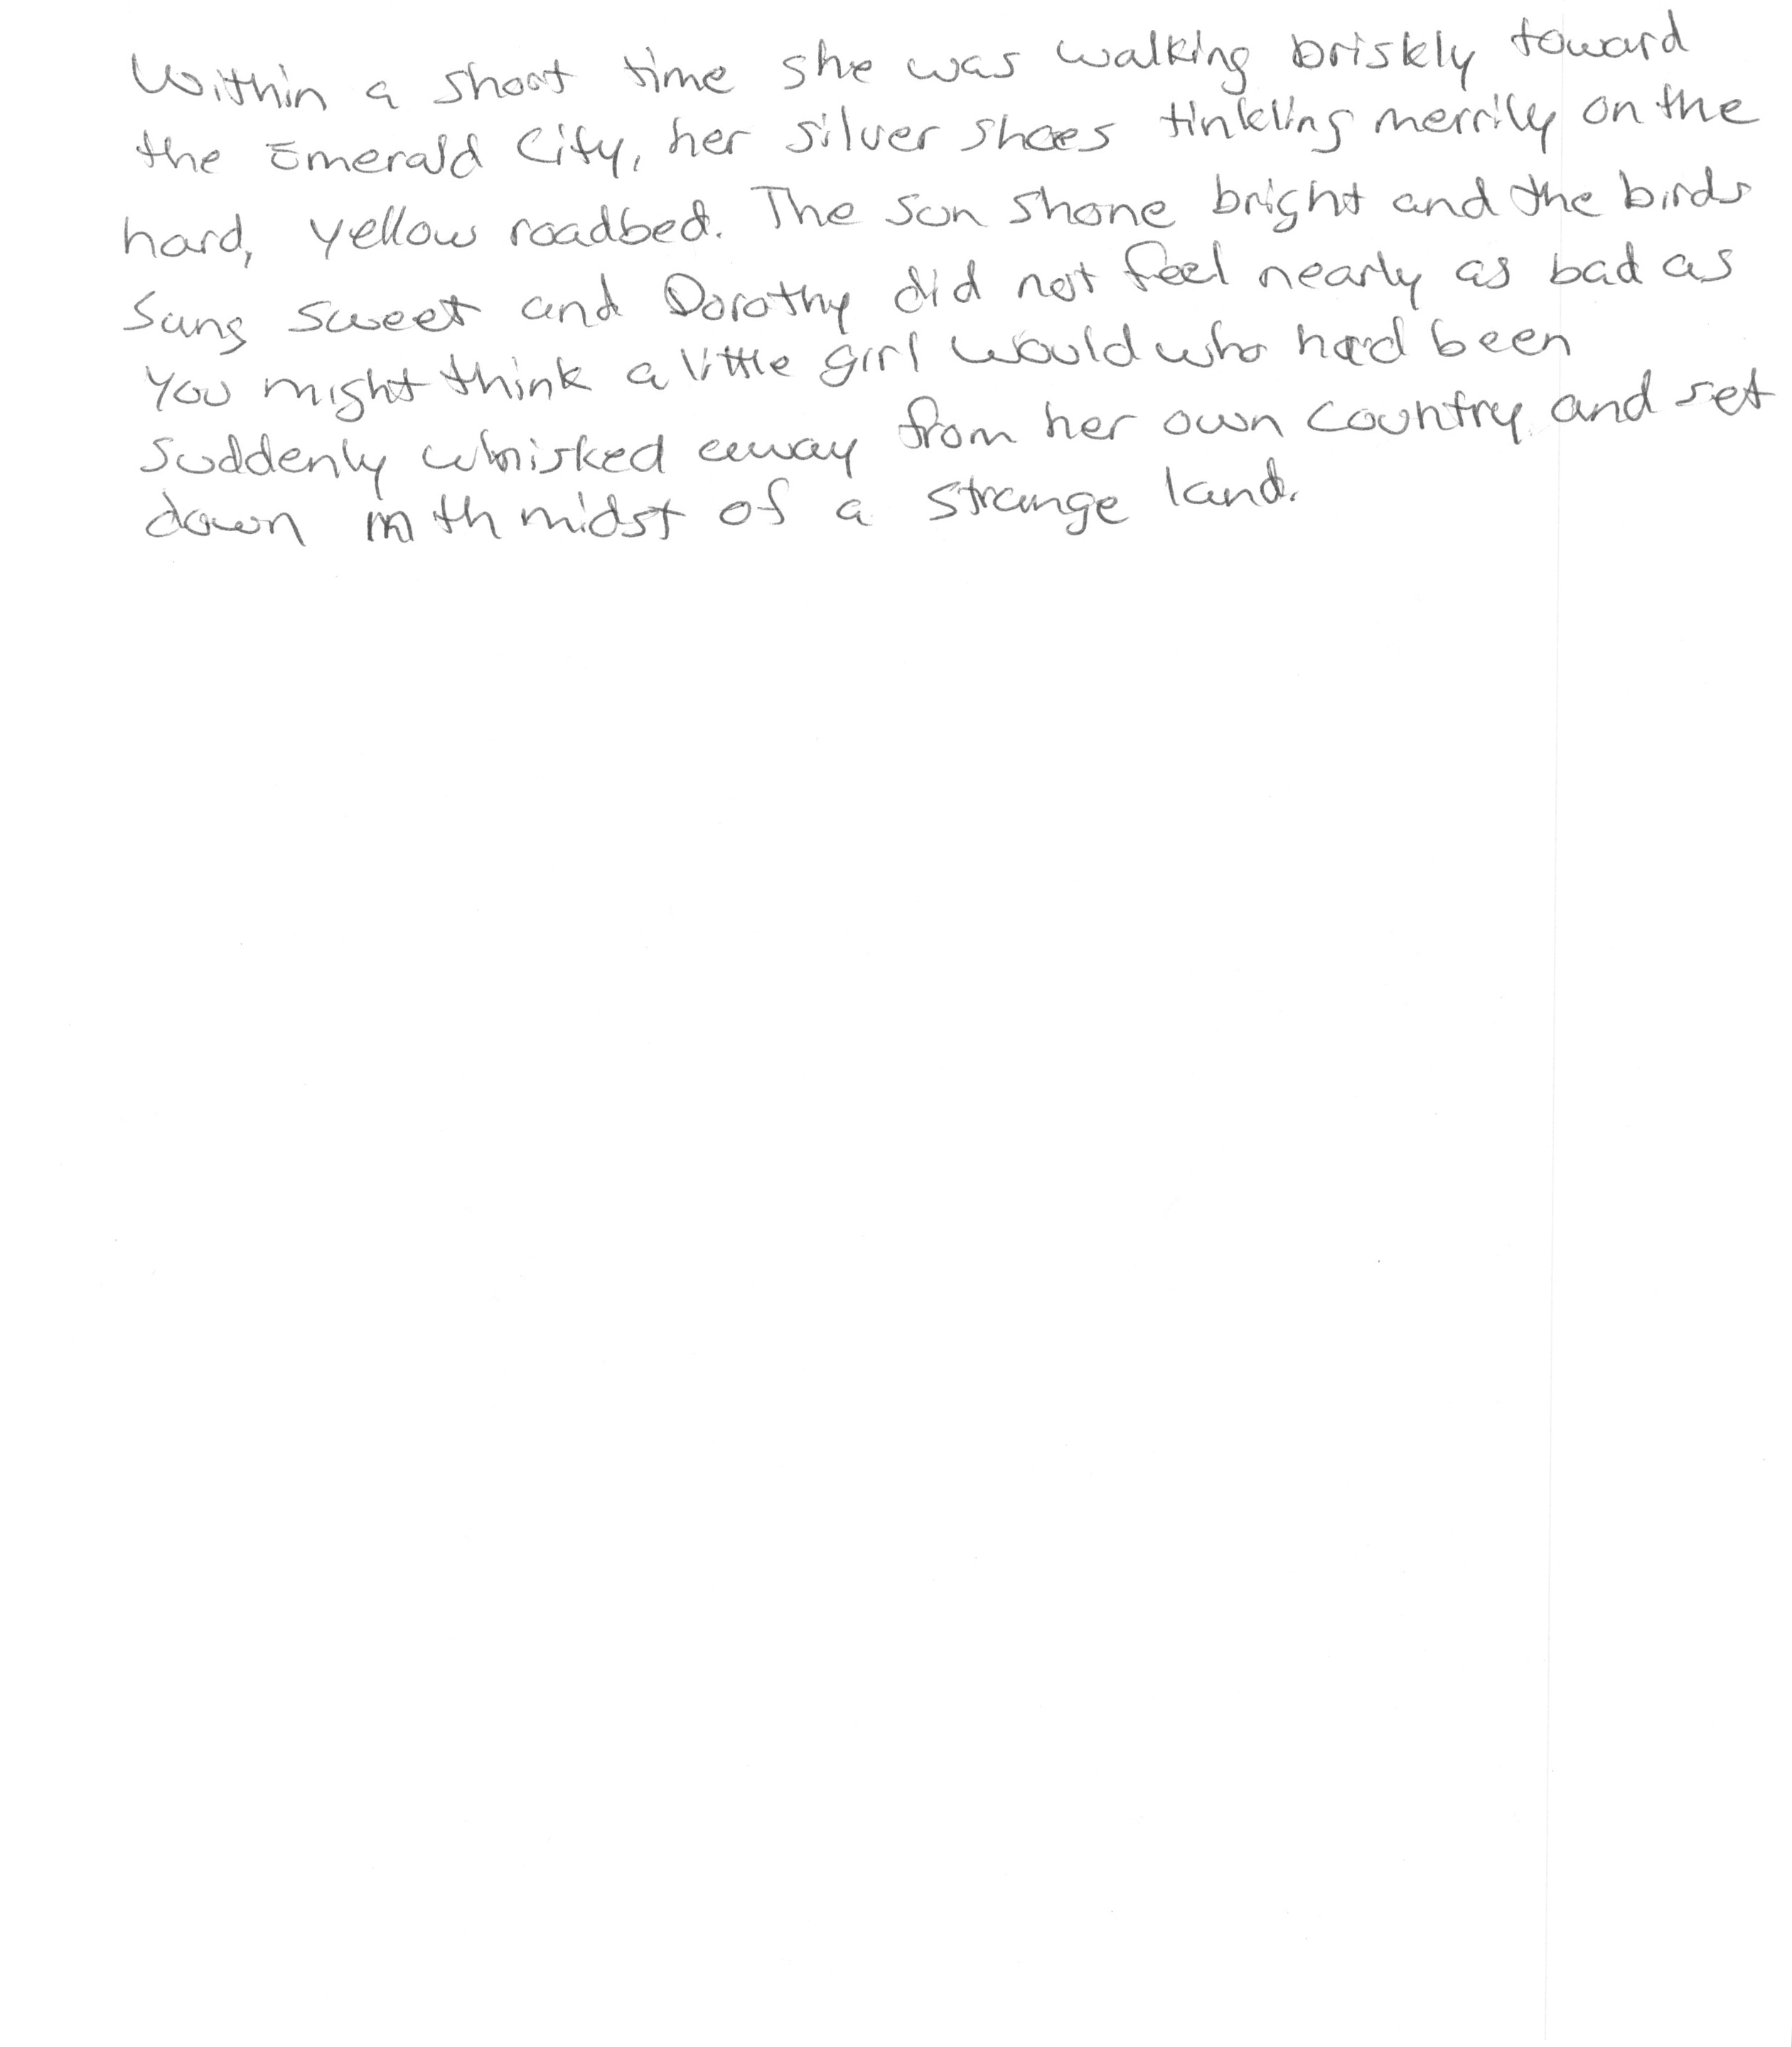 Within a short time she was walking briskly toward
the Emerald City, her silver shoes tinkling merrily on the
hard, yellow roadbed. The sun shone bright and the birds
sang sweet and Dorothy did not feel nearly as bad as
you might think a little girl would who had been
suddenly whisked away from her own country and set
down in th midst of a strange land.